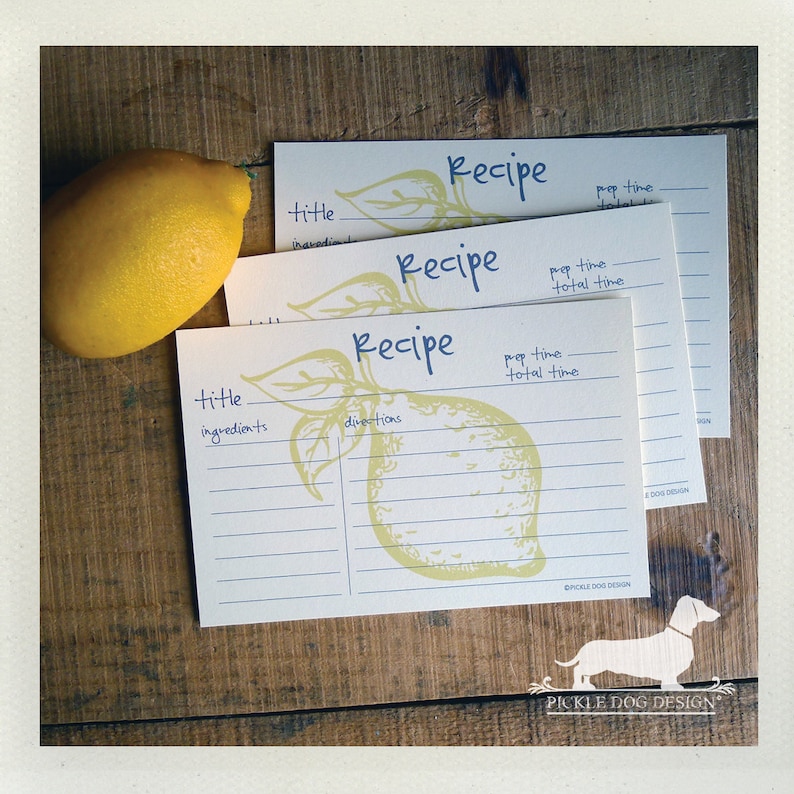 Recipe
prep time:
title
total time:
ingredients
Recipe
prep time:
total time:
title
DESIGN
Recipe
prep time:
total time:
title
ingredients
directions
LE DOG DESIGN
©PICKLE DOG DESIGN
PICKLE DOG DESIGN®